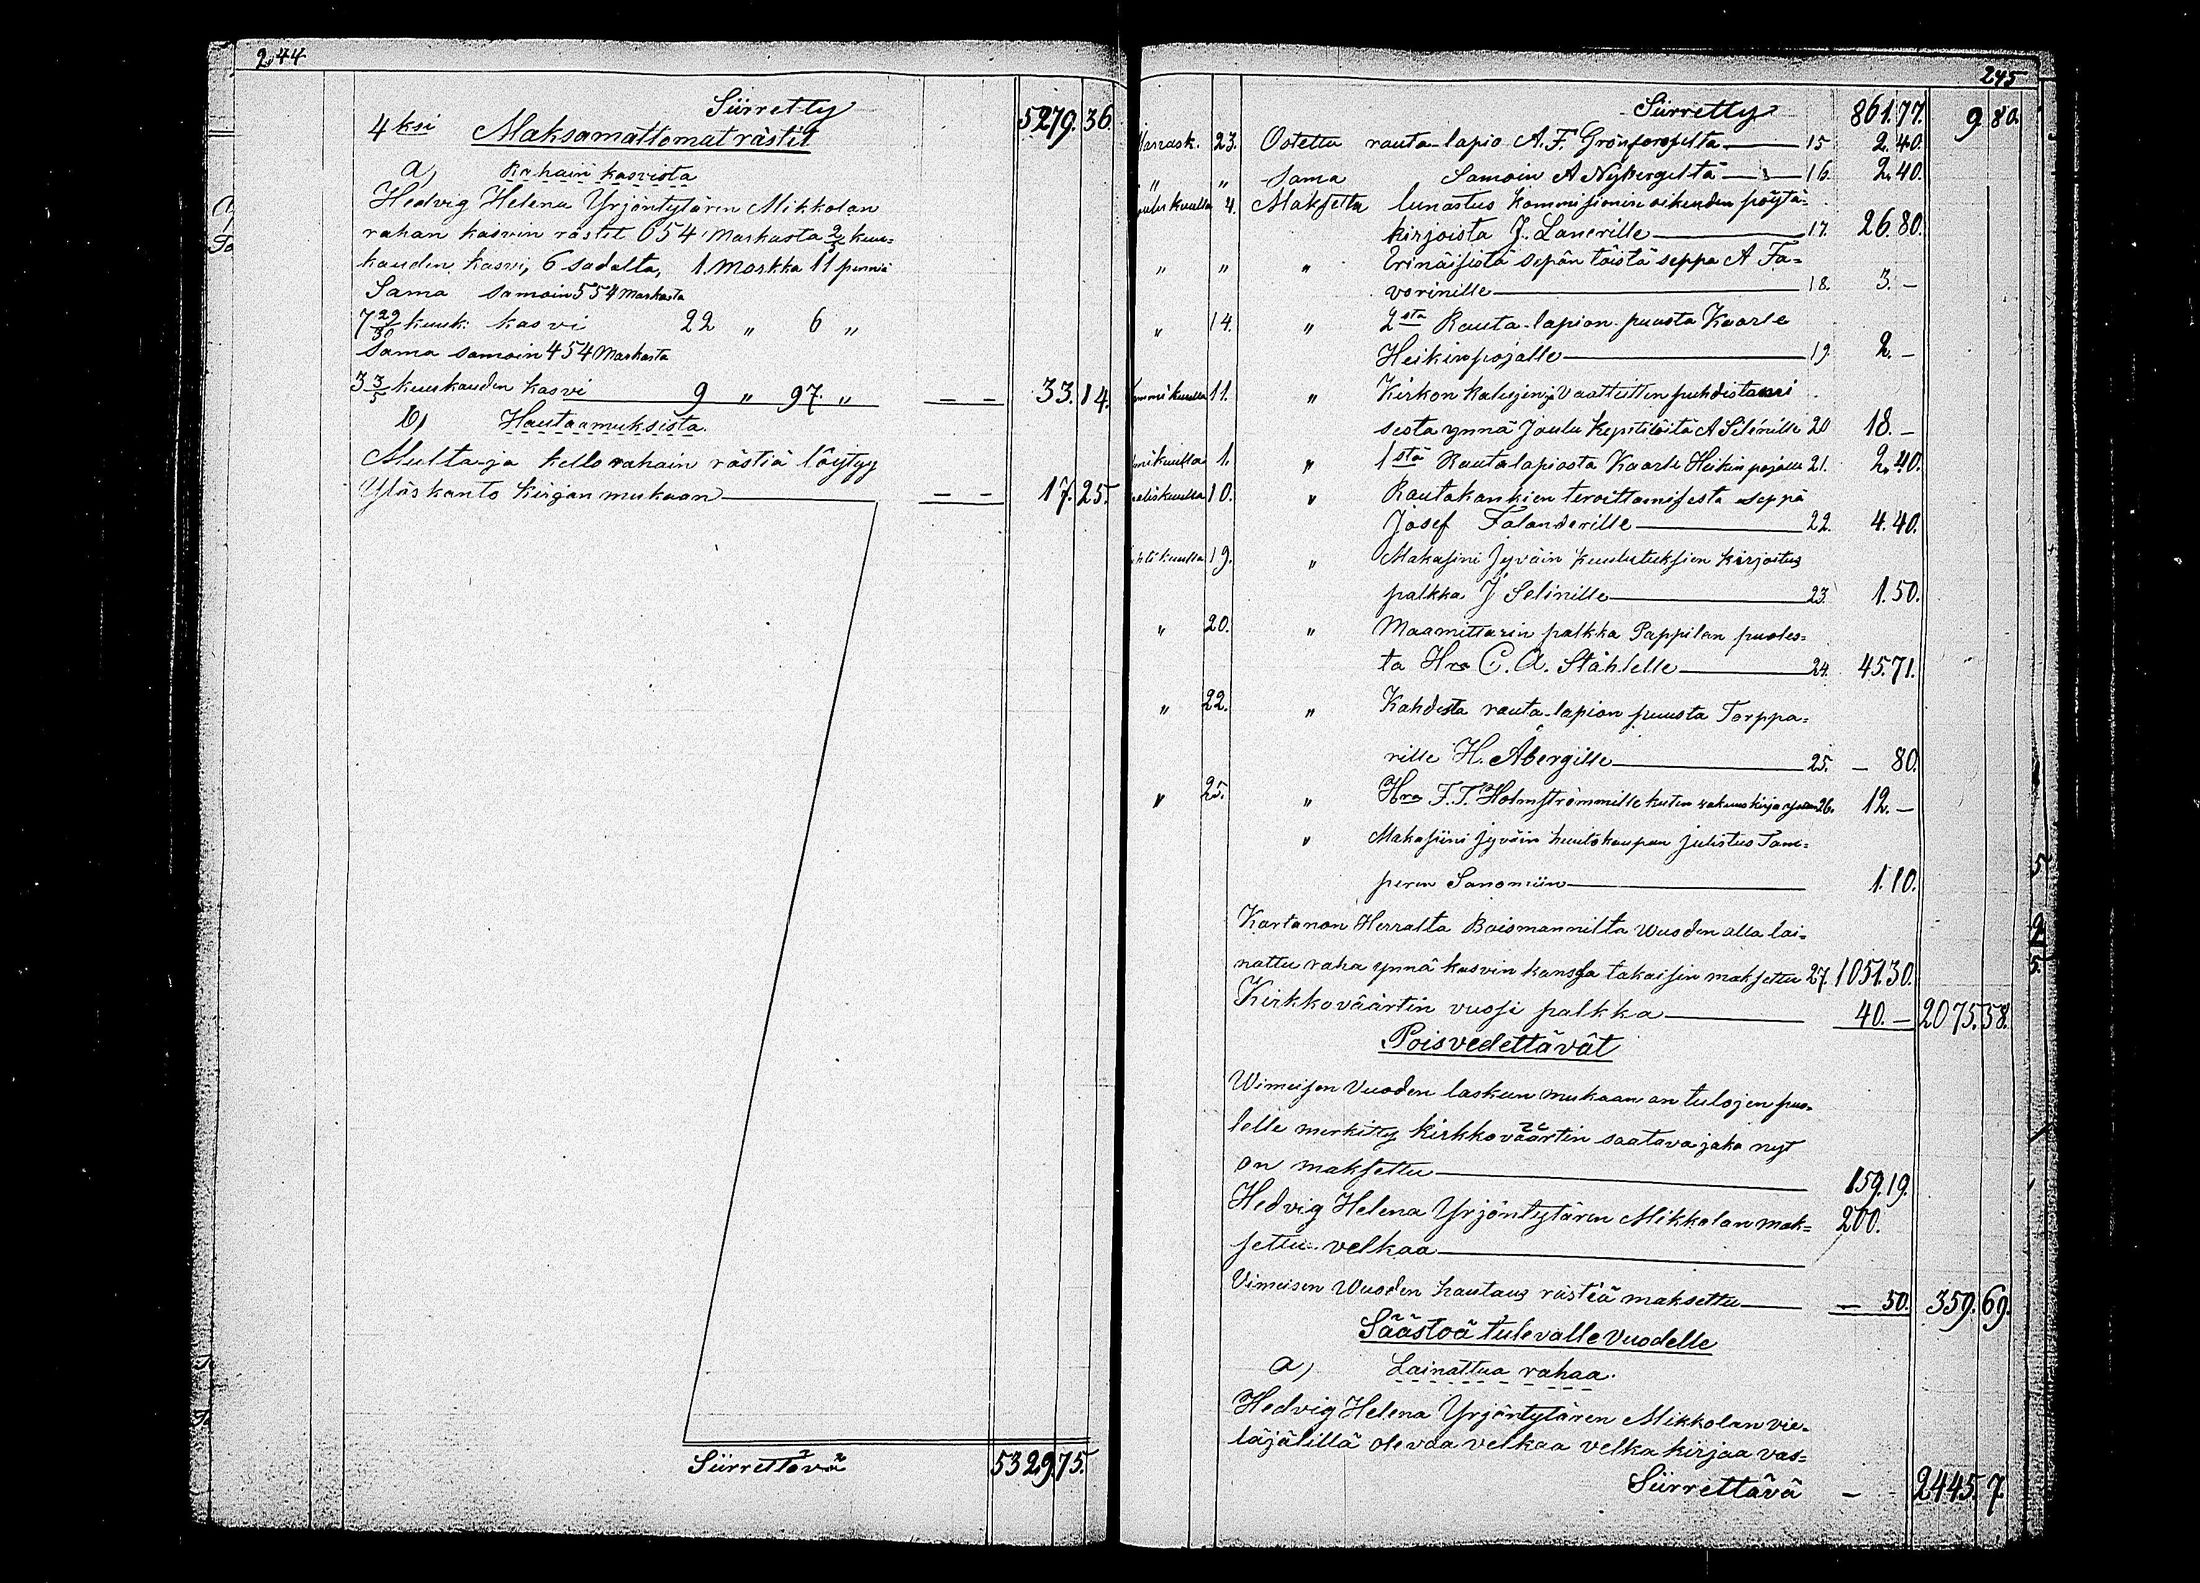 244
Siirretty 5279. 36.
4ksi Maksamattomat rästit
a) Rahain kasvista
Hedvig Helena Yrjöntytären Mikkolan
rahan kasvun rästit 654 Markasta 2/5 kuu-
kauden kasvi, 6 sadalta, 1. Markka 11 penniä
Sama samoin 554 Markasta
7 29/30 kuuk: kasvi 22 " 6 "
Sama samoin 454 Markasta
3 3/5 kuukauden kasvi 9 " 97. " — — 33. 14.
b) Hautaamuksista.
Multa- ja kello rahain rästiä löytyy
Ylöskanto kirjan mukaan — — 17. 25.
Siirrettävä 5329. 75.
245
Siirretty 861.77. 9 80.
Marrask. 23. Ostettu rauta-lapio A. F. Grönforsilta 15 2.40.
" " Sama Samoin A Nybergeltä 16. 2.40.
Joulukuulla 4. Maksettu lunastus Kommisionin oikeuden pöytä=
kirjoista J. Lanerille 17. 26.80.
" " " Erinäisistä sepän töistä seppä A Fa=
vorinille 18. 3. —
" 14. " 2sta Rauta-lapion puusta Kaarle
Heikinpojalle 19. 2. —
Tammikuulla 11. " Kirkon kalujen ja Vaatteitten puhdistami
sesta ynnä Joulu kynttilöitä A Selénille 20 18. —
1. " 1stä Rautalapiosta Kaarle Heikin pojalle 21. 2.40.
10. " Rautakankien teroittamisesta seppä
Josef Falanderille 22. 4.40.
19. " Makasini Jyväin kuulutuksien kirjoitus
palkka J Selinille 23. 1.50.
" 20. " Maamittarin palkka Pappilan puoles=
ta Hra C. A. Ståhlelle 24. 45.71.
" 22. " Kahdesta rauta-lapion puusta Torppa=
rille H. Åbergille 25. — 80.
" 25. " Hra F. T. Holmströmmille kuten 26. 12. —
" Makasiini jyväin huutokaupan julistus Tam=
peren Sanomiin 1.10.
Kartanon Herralta Boismannilta Wuoden alla lai=
nattu raha ynnä kasvin kanssa takaisin maksettu 27. 1051.30.
Kirkkoväärtin vuosi palkka 40. — 2075. 58.
Poisvedettävät
Wimeisen Vuoden laskun mukaan on tulojen puo=
lelle merkitty kirkkoväärtin saatava joka nyt
on maksettu 159.19.
Hedvig Helena Yrjöntytären Mikkolan mak= 200.
settu velkaa
Viimeisen Wuoden hautaus rästiä maksettu — 50. 359. 69.
Säästöä tulevalle vuodelle
a) Lainattua rahaa.
Hedvig Helena Yrjöntytären Mikkolan vie=
läjälillä olevaa velkaa velka kirjaa vas=
Siirrettävä — 2445. 7.